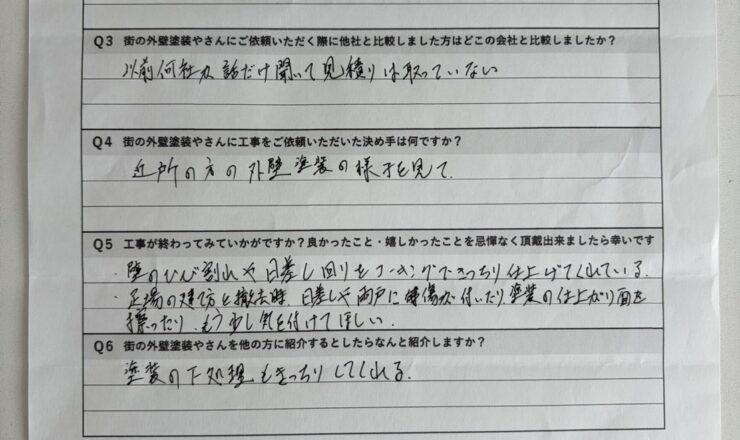 Q3 街の外壁塗装やさんにご依頼いただく際に他社と比較しました方はどこの会社と比較しましたか？
以前何社か話だけ聞いて見積りは取っていない
Q4 街の外壁塗装やさんに工事をご依頼いただいた決め手は何ですか？
近所の方の外壁塗装の様子を見て.
Q5 工事が終わってみていかがですか？良かったこと・嬉しかったことを忌憚なく頂戴出来ましたら幸いです
・壁のひび割れや日差し回りをコーキングできっちり仕上げてくれている.
・足場の建て方と撤去時、日差しや雨戸に傷が付いたり、塗装の仕上がり面を
擦ったり、もう少し気を付けてほしい.
Q6 街の外壁塗装やさんを他の方に紹介するとしたらなんと紹介しますか？
塗装の下処理もきっちりしてくれる.